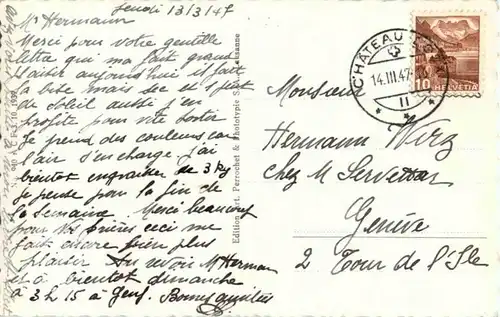 Jeudi 13/3/47
Mr Hermann
Merci pour votre gentille
lettre qui ma fait grand
plaisir aujourd'hui il fait
la bise mais sec et
de soleil aussi j'en
profite pour vite sortir
Je prend des couleurs car
l'air s'en charge. j'ai
bientôt engraisser de 3 kg
je pense pour la fin de
la semaine. Merci beaucoup
pour vos prières ceci me
fait encore bien plus
plaisir Au revoir Mr Herman
et à bientôt dimanche
à 3 h 15 à
Edition d'art. Perrochet & Phototypie
CHÂTEAU
14.III.47
II
10
HELVETIA
Monsieur
Hermann Wirz
chez M Servettaz
Genève
2 Tour de l'Ile